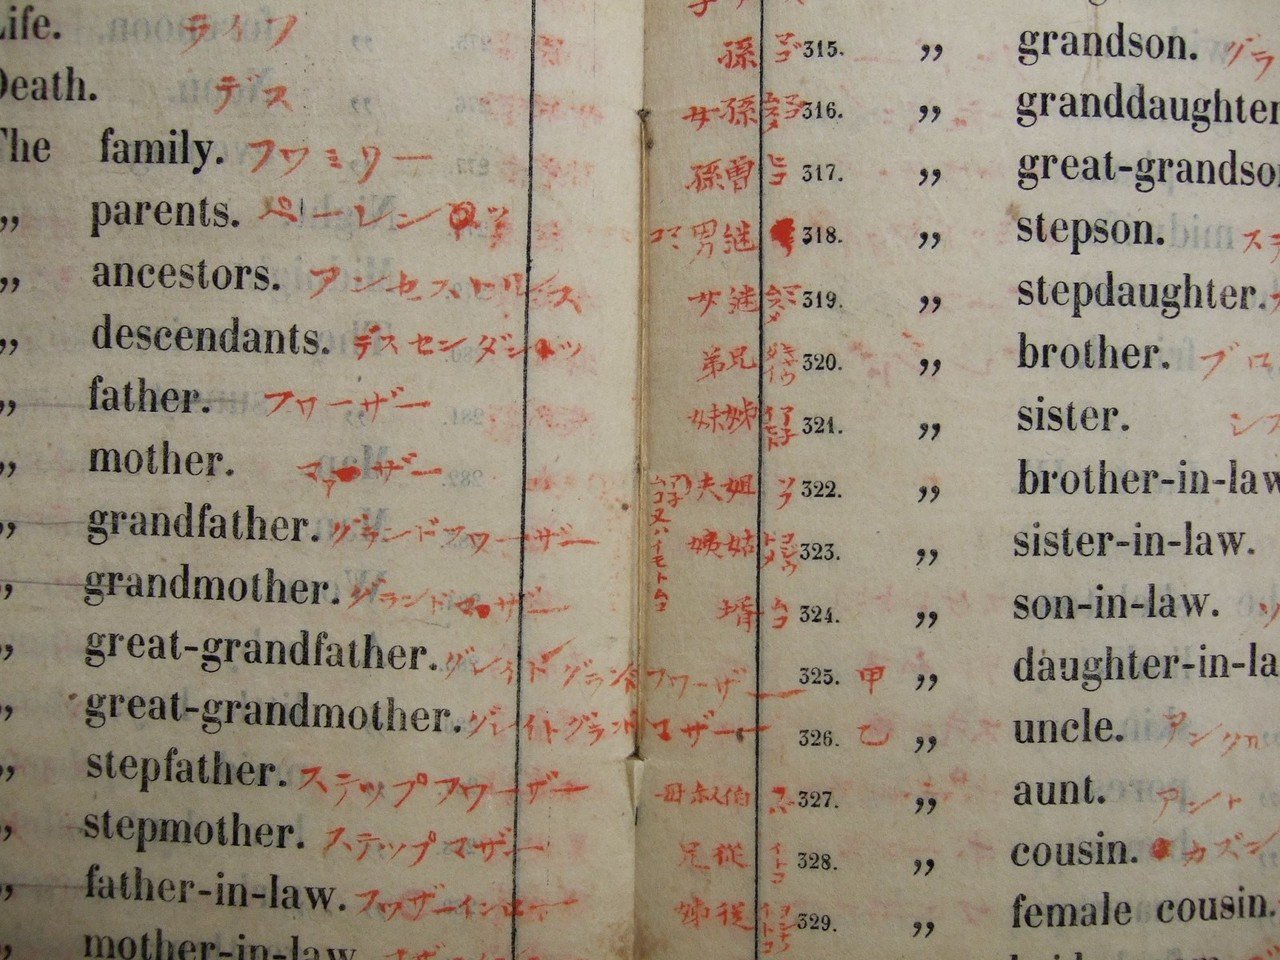 Life. ライフ
Death. デス
The family. フワミリー
„ parents. ペーレンツ
„ ancestors. アンセストルス
„ descendants. デスセンダンツ
„ father. フワーザー
„ mother. マザー
„ grandfather. グランドフワーザー
„ grandmother. グランドマザー
„ great-grandfather. グレイトグランドフワーザー
„ great-grandmother. グレイトグランドマザー
„ stepfather. ステップフワーザー
„ stepmother. ステップマザー
„ father-in-law. フワザーインロー
„ mother-in-law
孫 マゴ 315. „ grandson. グラ
女孫 316. „ granddaughter
孫曽 ヒコ 317. „ great-grandso
男継 318. „ stepson. ステ
女継 319. „ stepdaughter.
弟兄 320. „ brother. ブロ
妹姉 321. „ sister. シス
夫姐 322. „ brother-in-law
姨姑 323. „ sister-in-law.
壻 ムコ 324. „ son-in-law.
325. 甲 „ daughter-in-la
326. 乙 „ uncle. アンクル
母叔伯 327. „ aunt. アント
兄従 イトコ 328. „ cousin. カズン
姉従 329. „ female cousin.